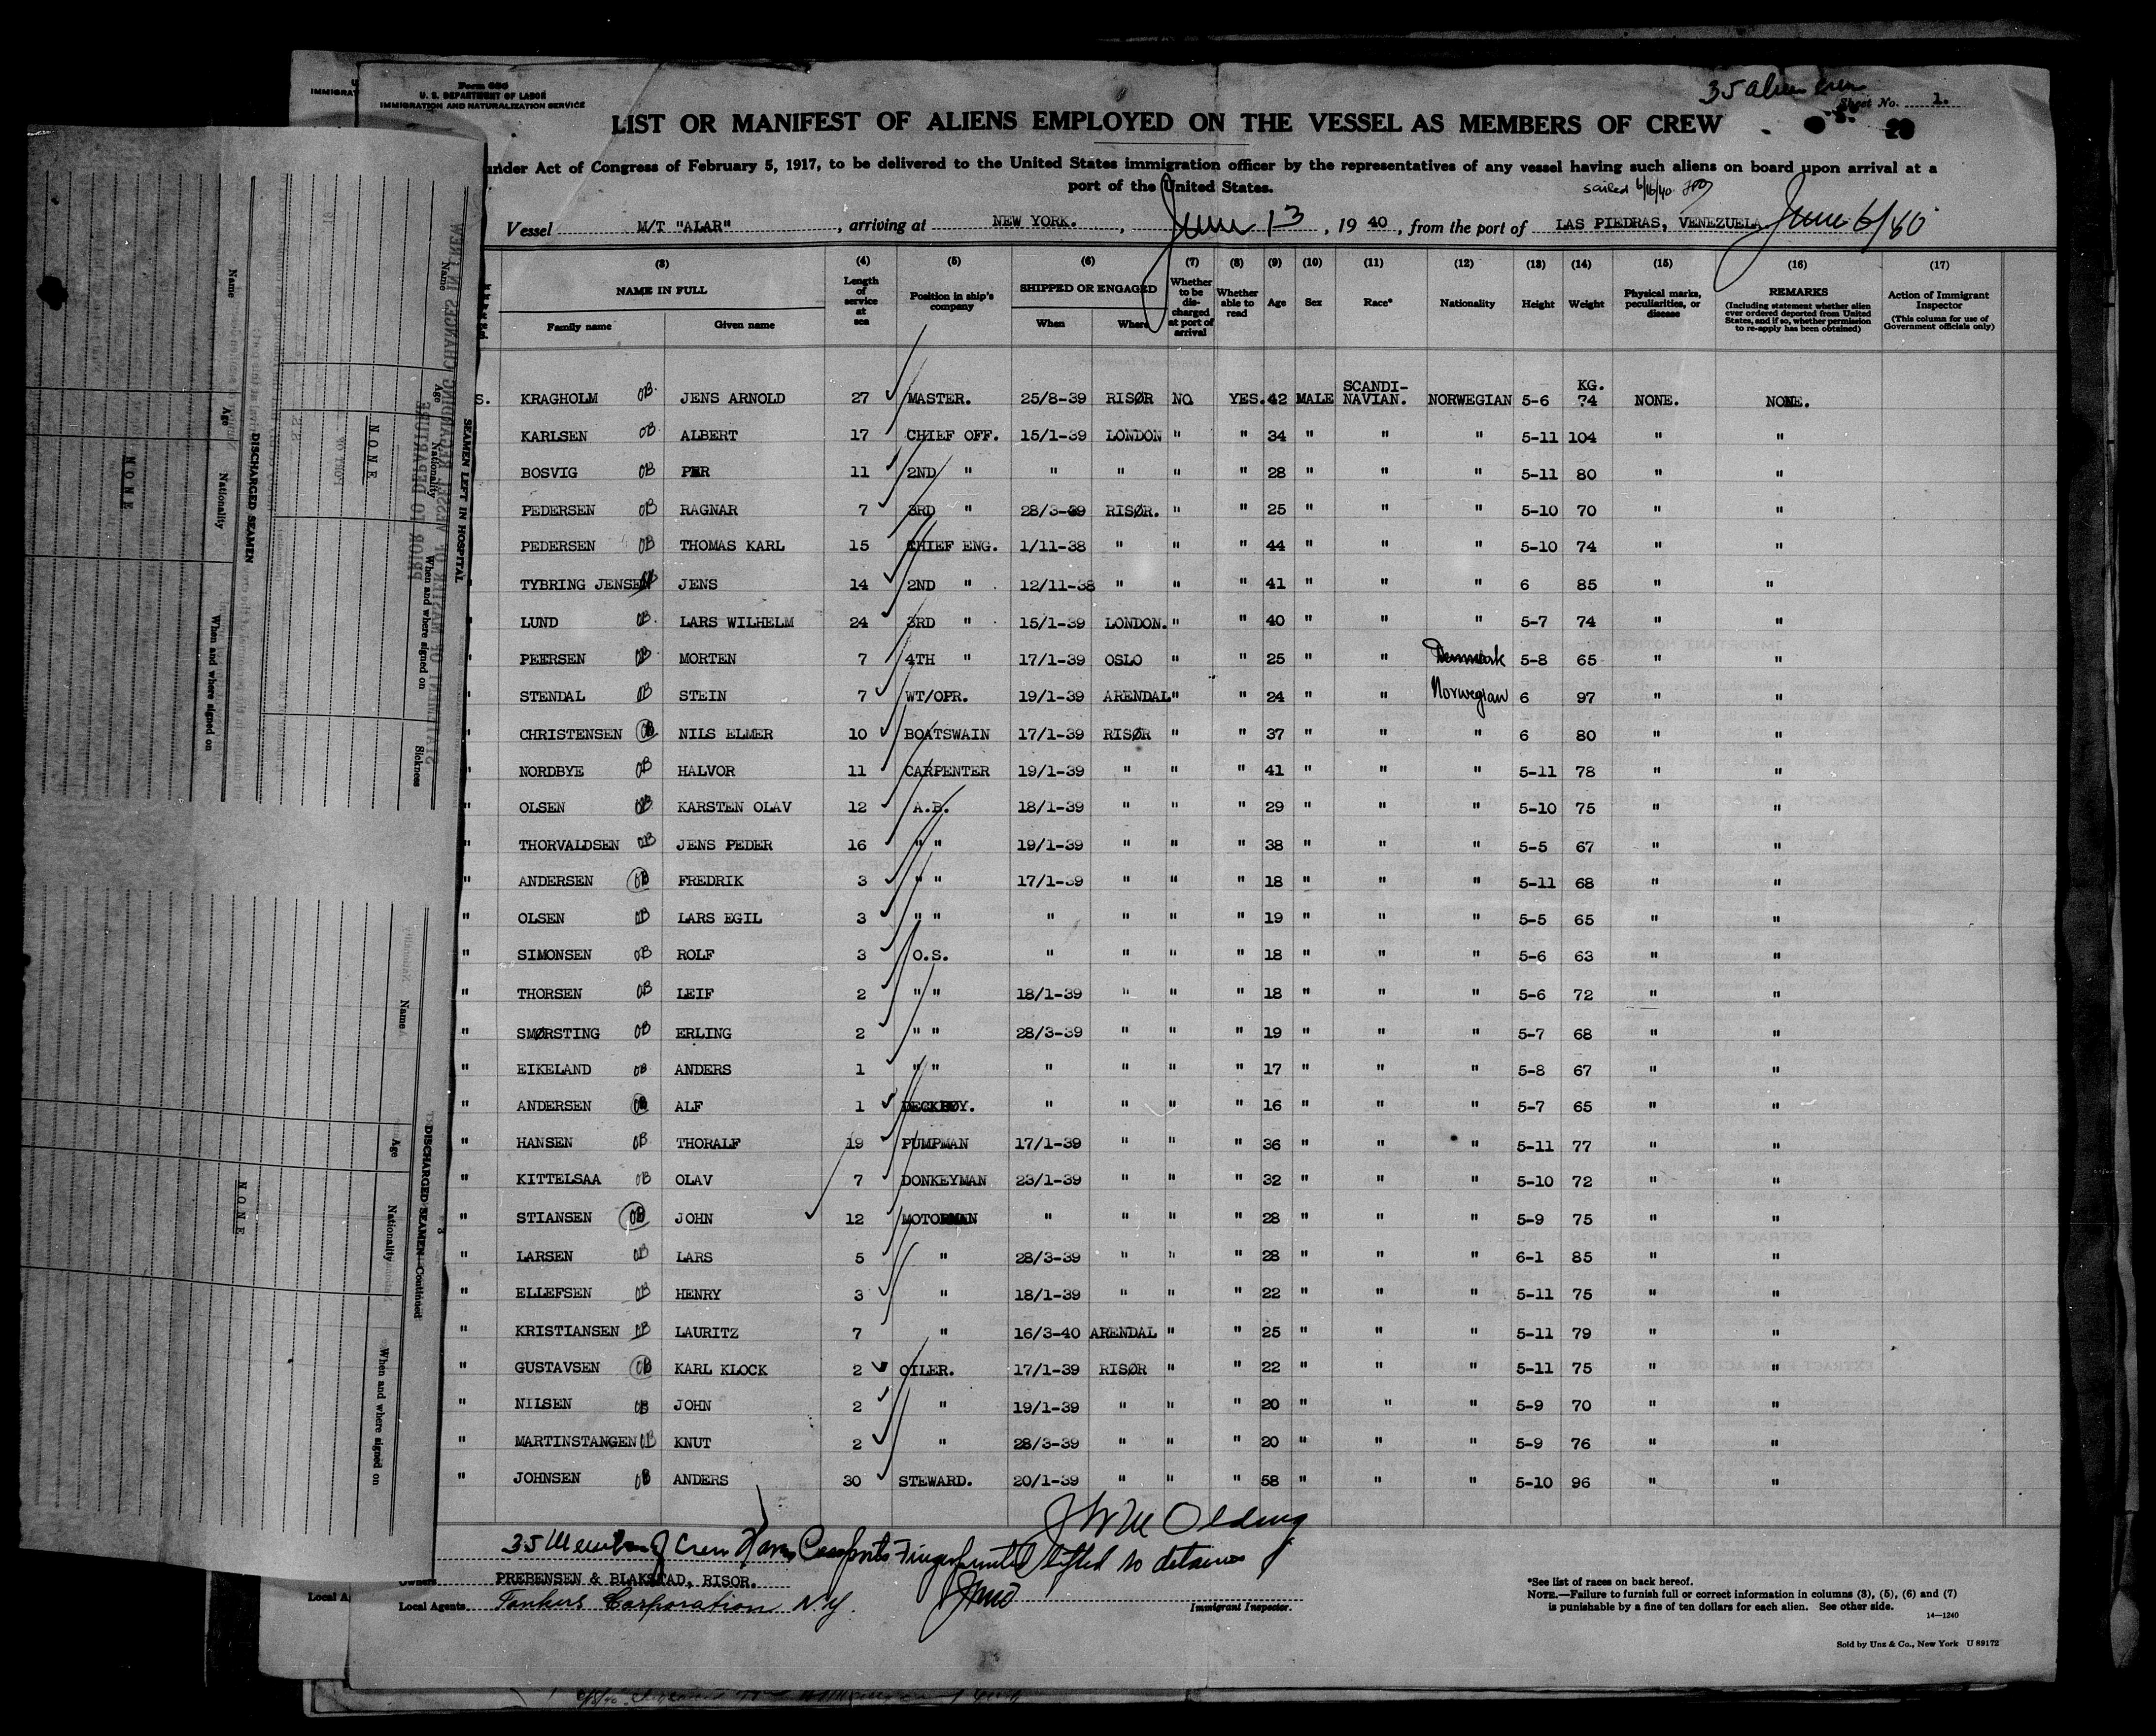 Form 680
U. S. DEPARTMENT OF LABOR
IMMIGRATION AND NATURALIZATION SERVICE
35 alien crew
Sheet No. 1.
LIST OR MANIFEST OF ALIENS EMPLOYED ON THE VESSEL AS MEMBERS OF CREW
under Act of Congress of February 5, 1917, to be delivered to the United States immigration officer by the representatives of any vessel having such aliens on board upon arrival at a
port of the United States.
sailed 6/16/40
Vessel M/T "ALAR", arriving at NEW YORK., June 13, 1940, from the port of LAS PIEDRAS, VENEZUELA June 6/40
(3) (4) (5) (6) (7) (8) (9) (10) (11) (12) (13) (14) (15) (16) (17)
NAME IN FULL Length of service at sea Position in ship's company SHIPPED OR ENGAGED Whether to be discharged at port of arrival Whether able to read Age Sex Race* Nationality Height Weight Physical marks, peculiarities, or disease REMARKS (Including statement whether alien ever ordered deported from United States, and if so, whether permission to re-apply has been obtained) Action of Immigrant Inspector (This column for use of Government officials only)
Family name Given name When Where
S. KRAGHOLM OB JENS ARNOLD 27 MASTER. 25/8-39 RISØR NO YES. 42 MALE SCANDI-NAVIAN. NORWEGIAN 5-6 KG. 74 NONE. NONE.
KARLSEN OB ALBERT 17 CHIEF OFF. 15/1-39 LONDON " " 34 " " " 5-11 104 " "
BOSVIG OB PER 11 2ND " " " " " 28 " " " 5-11 80 " "
PEDERSEN OB RAGNAR 7 3RD " 28/3-39 RISØR. " " 25 " " " 5-10 70 " "
PEDERSEN OB THOMAS KARL 15 CHIEF ENG. 1/11-38 " " " 44 " " " 5-10 74 " "
TYBRING JENSEN OB JENS 14 2ND " 12/11-38 " " " 41 " " " 6 85 " "
LUND OB LARS WILHELM 24 3RD " 15/1-39 LONDON. " " 40 " " " 5-7 74 " "
" PEERSEN OB MORTEN 7 4TH " 17/1-39 OSLO " " 25 " " Denmark 5-8 65 " "
" STENDAL OB STEIN 7 WT/OPR. 19/1-39 ARENDAL " " 24 " " Norwegian 6 97 " "
" CHRISTENSEN OB NILS ELMER 10 BOATSWAIN 17/1-39 RISØR " " 37 " " " 6 80 " "
" NORDBYE OB HALVOR 11 CARPENTER 19/1-39 " " " 41 " " " 5-11 78 " "
" OLSEN OB KARSTEN OLAV 12 A.B. 18/1-39 " " " 29 " " " 5-10 75 " "
" THORVALDSEN OB JENS PEDER 16 " " 19/1-39 " " " 38 " " " 5-5 67 " "
" ANDERSEN OB FREDRIK 3 " " 17/1-39 " " " 18 " " " 5-11 68 " "
" OLSEN OB LARS EGIL 3 " " " " " " 19 " " " 5-5 65 " "
" SIMONSEN OB ROLF 3 O.S. " " " " 18 " " " 5-6 63 " "
" THORSEN OB LEIF 2 " " 18/1-39 " " " 18 " " " 5-6 72 " "
" SMØRSTING OB ERLING 2 " " 28/3-39 " " " 19 " " " 5-7 68 " "
" EIKELAND OB ANDERS 1 " " " " " " 17 " " " 5-8 67 " "
" ANDERSEN OB ALF 1 DECKBOY. " " " " 16 " " " 5-7 65 " "
" HANSEN OB THORALF 19 PUMPMAN 17/1-39 " " " 36 " " " 5-11 77 " "
" KITTELSAA OB OLAV 7 DONKEYMAN 23/1-39 " " " 32 " " " 5-10 72 " "
" STIANSEN OB JOHN 12 MOTORMAN " " " " 28 " " " 5-9 75 " "
" LARSEN OB LARS 5 " 28/3-39 " " " 28 " " " 6-1 85 " "
" ELLEFSEN OB HENRY 3 " 18/1-39 " " " 22 " " " 5-11 75 " "
" KRISTIANSEN OB LAURITZ 7 " 16/3-40 ARENDAL " " 25 " " " 5-11 79 " "
" GUSTAVSEN OB KARL KLOCK 2 OILER. 17/1-39 RISØR " " 22 " " " 5-11 75 " "
" NILSEN OB JOHN 2 " 19/1-39 " " " 20 " " " 5-9 70 " "
" MARTINSTANGEN OB KNUT 2 " 28/3-39 " " " 20 " " " 5-9 76 " "
" JOHNSEN OB ANDERS 30 STEWARD. 20/1-39 " " " 58 " " " 5-10 96 " "
35 Members of Crew Fingerprinted lifted no detained
Owners PREBENSEN & BLAKSTAD, RISOR.
Local Agents Tankers Corporation N.Y.
Immigrant Inspector.
*See list of races on back hereof.
NOTE.—Failure to furnish full or correct information in columns (3), (5), (6) and (7)
is punishable by a fine of ten dollars for each alien. See other side.
14—1240
Sold by Unz & Co., New York U 89172
Local A
IMMIGRAT
SEAMEN LEFT IN HOSPITAL
Name Age Nationality When and where signed on Sickness
NONE
DISCHARGED SEAMEN
Name Age Nationality When and where signed on
NONE
DISCHARGED SEAMEN—Continued
Name Age Nationality When and where signed on
NONE